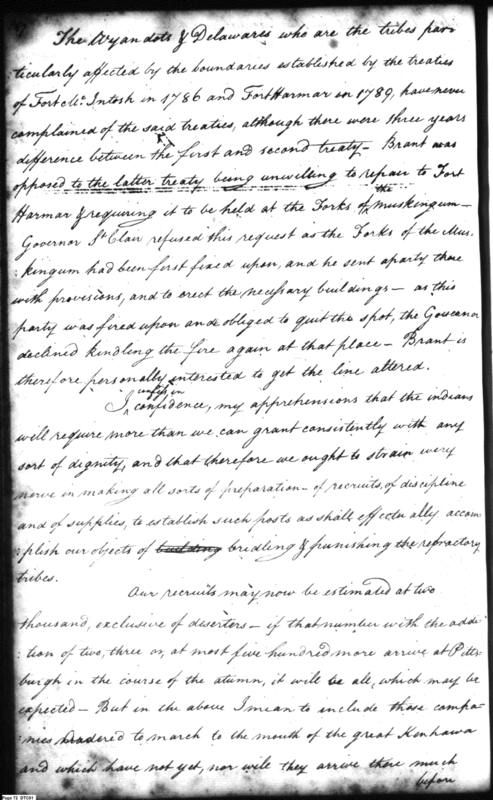 The Wyandots & Delawares who are the tribes par-
ticularly affected by the boundaries established by the treaties
of Fort Mc. Intosh in 1786 and Fort Harmar in 1789, have never
complained of the said treaties, although there were three years
difference between the first and second treaty – Brant was
opposed to the latter treaty being unwilling to repair to Fort
Harmar & requiring it to be held at the Forks of the Muskingum –
Governor St Clair refused this request as the Forks of the Mus-
:kingum had been first fixed upon, and he sent a party there
with provisions, and to erect the necessary buildings – as this
party was fired upon and obliged to quit the spot, the Governor
declined kindling the fire again at that place – Brant is
therefore personally interested to get the line altered.
I confess in confidence, my apprehensions that the indians
will require more than we can grant consistently with any
sort of dignity, and that therefore we ought to strain every
nerve in making all sorts of preparation – of recruits, of discipline
and of supplies, to establish such posts as shall effectually accom
:plish our objects of building bridling & punishing the refractory
tribes.
Our recruits may now be estimated at two
thousand, exclusive of deserters – if that number with the addi-
tion of two, three or, at most five hundred more arrive at Pitts-
burgh in the course of the atumn, it will be all, which may be
expected – But in the above I mean to include those compa-
nies ordered to march to the mouth of the great Kenhawa
and which have not yet, nor will they arrive there much
before
Page 72 DTC01